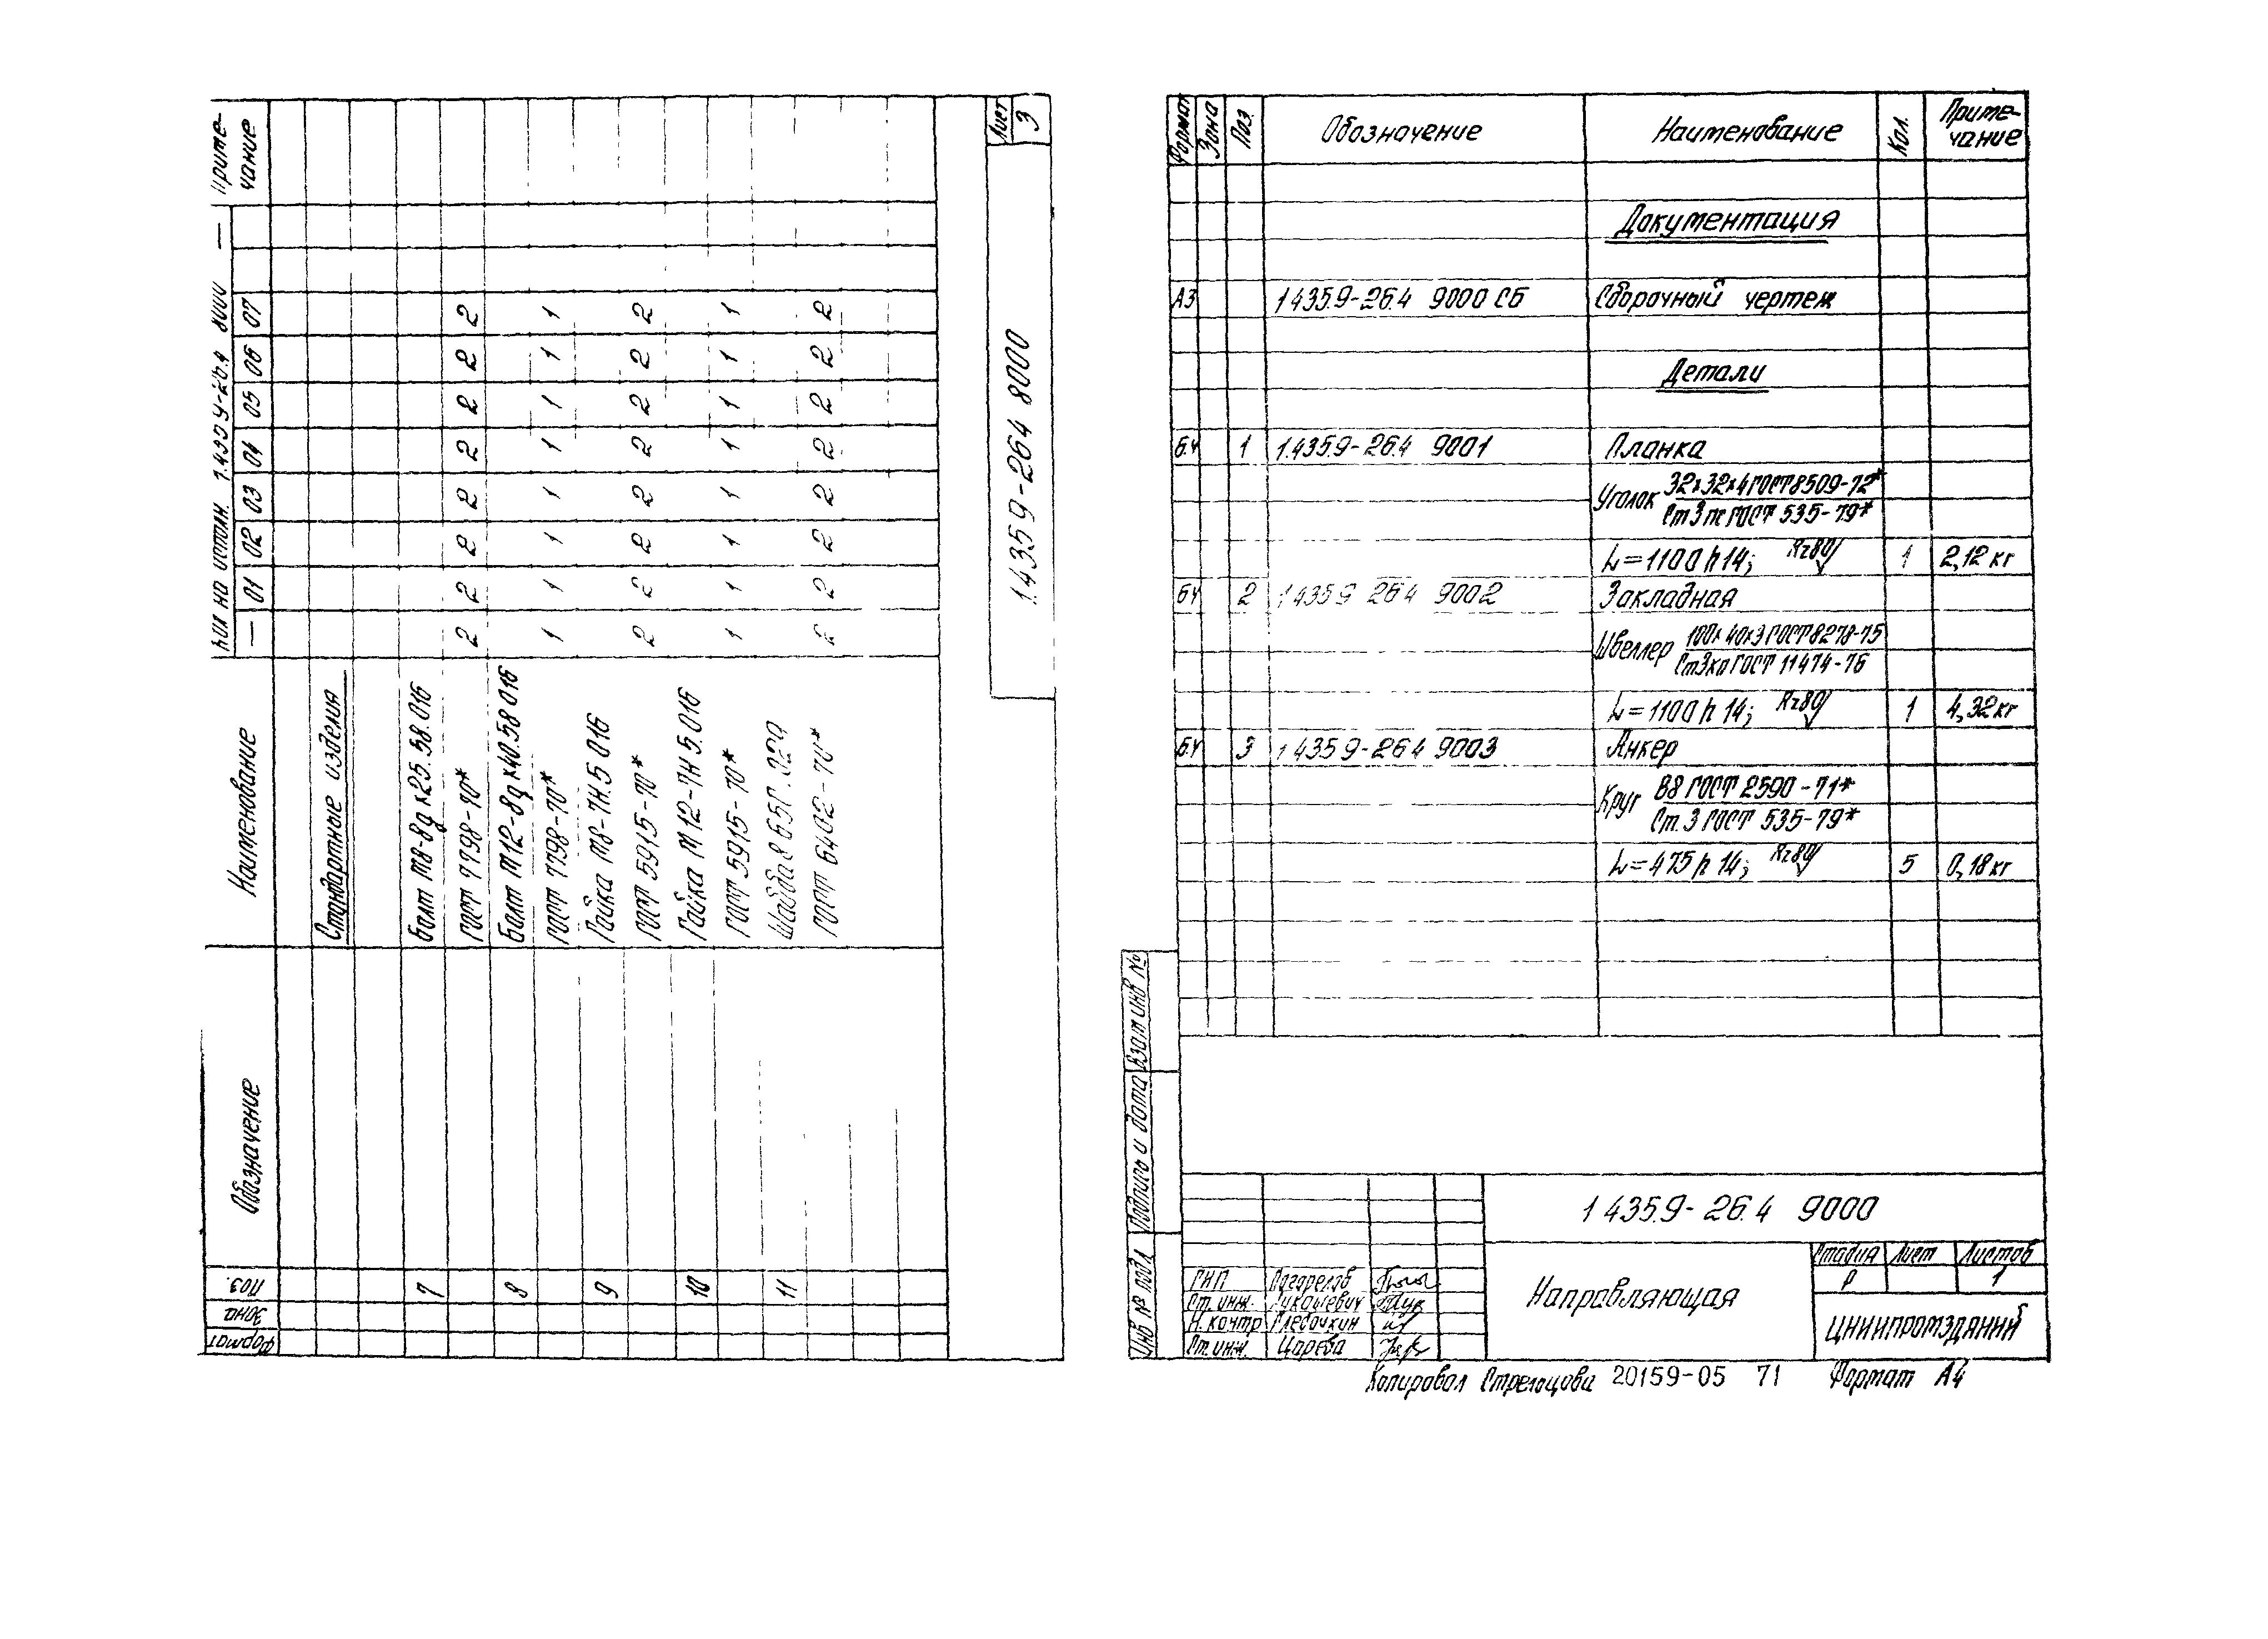 Формат Зона Поз. Обозначение Наименование Кол. на исполн. 1.435.9-26.4 8000 — Приме-
чание
— 01 02 03 04 05 06 07
Стандартные изделия
7 Болт М8-8g×25.58.016
ГОСТ 7798-70* 2 2 2 2 2 2 2 2
8 Болт М12-8g×40.58 016
ГОСТ 7798-70* 1 1 1 1 1 1 1 1
9 Гайка М8-7Н.5 016
ГОСТ 5915-70* 2 2 2 2 2 2 2 2
10 Гайка М12-7Н 5.016
ГОСТ 5915-70* 1 1 1 1 1 1 1 1
11 Шайба 8 65Г.029
ГОСТ 6402-70* 2 2 2 2 2 2 2 2
1.435.9-26.4 8000
Лист
3
Формат Зона Поз. Обозначение Наименование Кол. Приме-
чание
Документация
А3 1.435.9-26.4 9000 СБ Сборочный чертеж
Детали
Б.Ч 1 1.435.9-26.4 9001 Планка
Уголок 32×32×4 ГОСТ 8509-72*
Ст 3 пс ГОСТ 535-79*
L=1100 h 14; Rz80 1 2,12 кг
БЧ 2 1 435.9 26.4 9002 Закладная
Швеллер 100×40×3 ГОСТ 8278-75
Ст3кп ГОСТ 11474-76
L=1100 h 14; Rz80 1 4,32 кг
Б.Ч 3 1 435.9-26.4 9003 Анкер
Круг В8 ГОСТ 2590-71*
Ст. 3 ГОСТ 535-79*
L=475 h 14; Rz80 5 0,18 кг
Инв № подл Подпись и дата Взам инв №
1 435.9-26.4 9000
Направляющая
Стадия Лист Листов
Р 1
ЦНИИПРОМЗДАНИЙ
ГИП Погорелов
Ст. инж.
Н. контр Хлебочкин
Ст. инж. Царева
Копировал Стрельцова 20159-05 71 Формат А4